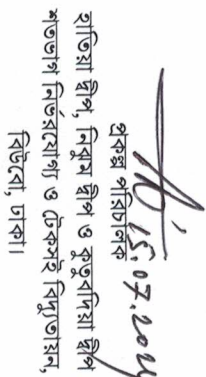 15.07.2024
প্রকল্প পরিচালক
হাতিয়া দ্বীপ, নিঝুম দ্বীপ ও কুতুবদিয়া দ্বীপ
শতভাগ নির্ভরযোগ্য ও টেকসই বিদ্যুতায়ন,
বিউবো, ঢাকা।